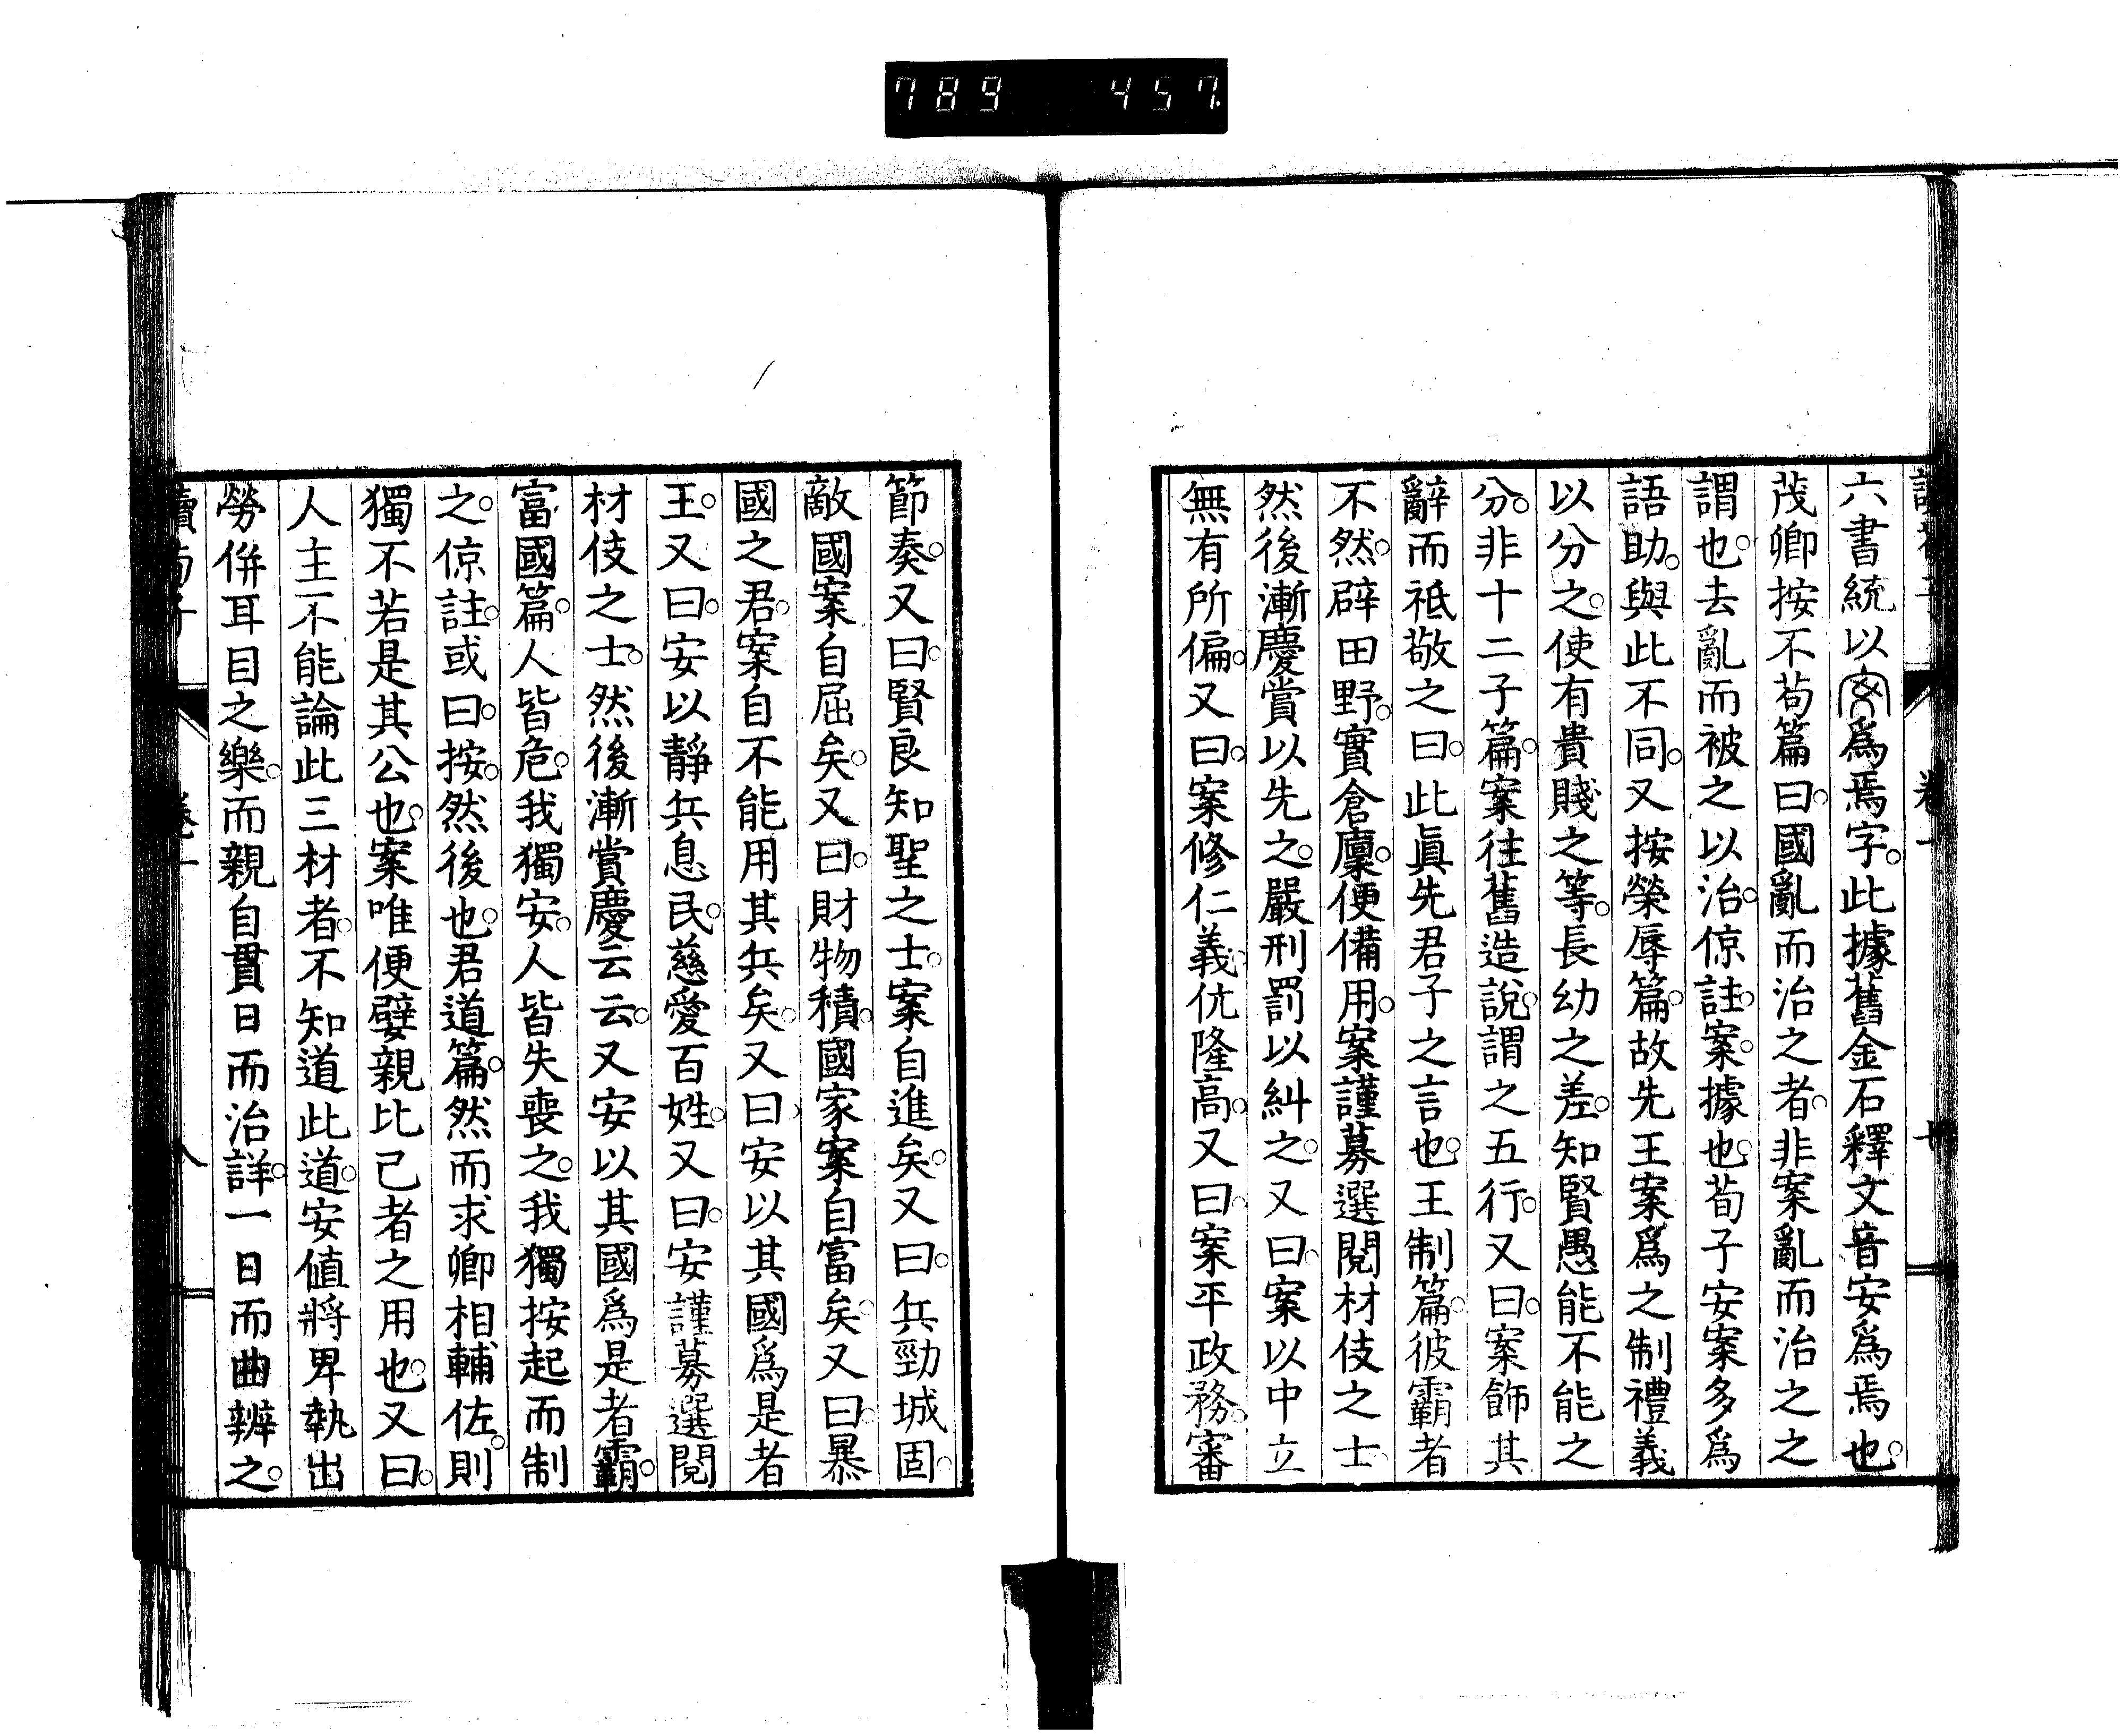 789 457
六書統以爲焉字。此據舊金石釋文音安爲焉也。
茂卿按不苟篇曰。國亂而治之者。非案亂而治之之
謂也。去亂而被之以治。倞註。案。據也。荀子安案多爲
語助。與此不同。又按榮辱篇。故先王案爲之制禮義
以分之。使有貴賤之等。長幼之差。知賢愚能不能之
分。非十二子篇。案往舊造說。謂之五行。又曰。案飾其
辭而祗敬之曰。此眞先君子之言也。王制篇。彼霸者
不然。辟田野。實倉廩。便備用。案謹募選閱材伎之士。
然後漸慶賞以先之。嚴刑罰以糾之。又曰。案以中立
無有所偏。又曰。案修仁義。伉隆高。又曰。案平政務。審
節奏。又曰。賢良知聖之士。案自進矣。又曰。兵勁城固。
敵國案自屈矣。又曰。財物積。國家案自富矣。又曰。暴
國之君。案自不能用其兵矣。又曰。安以其國爲是者
王。又曰。安以靜兵息民。慈愛百姓。又曰。安謹募選閱
材伎之士。然後漸賞慶云云。又安以其國爲是者霸。
富國篇。人皆危。我獨安。人皆失喪之。我獨按起而制
之。倞註。或曰。按。然後也。君道篇。然而求卿相輔佐。則
獨不若是其公也。案唯便嬖親比己者之用也。又曰。
人主不能論此三材者。不知道此道。安値將卑執出
勞倂耳目之樂。而親自貫日而治詳。一日而曲辨之。
讀荀子 卷一 八